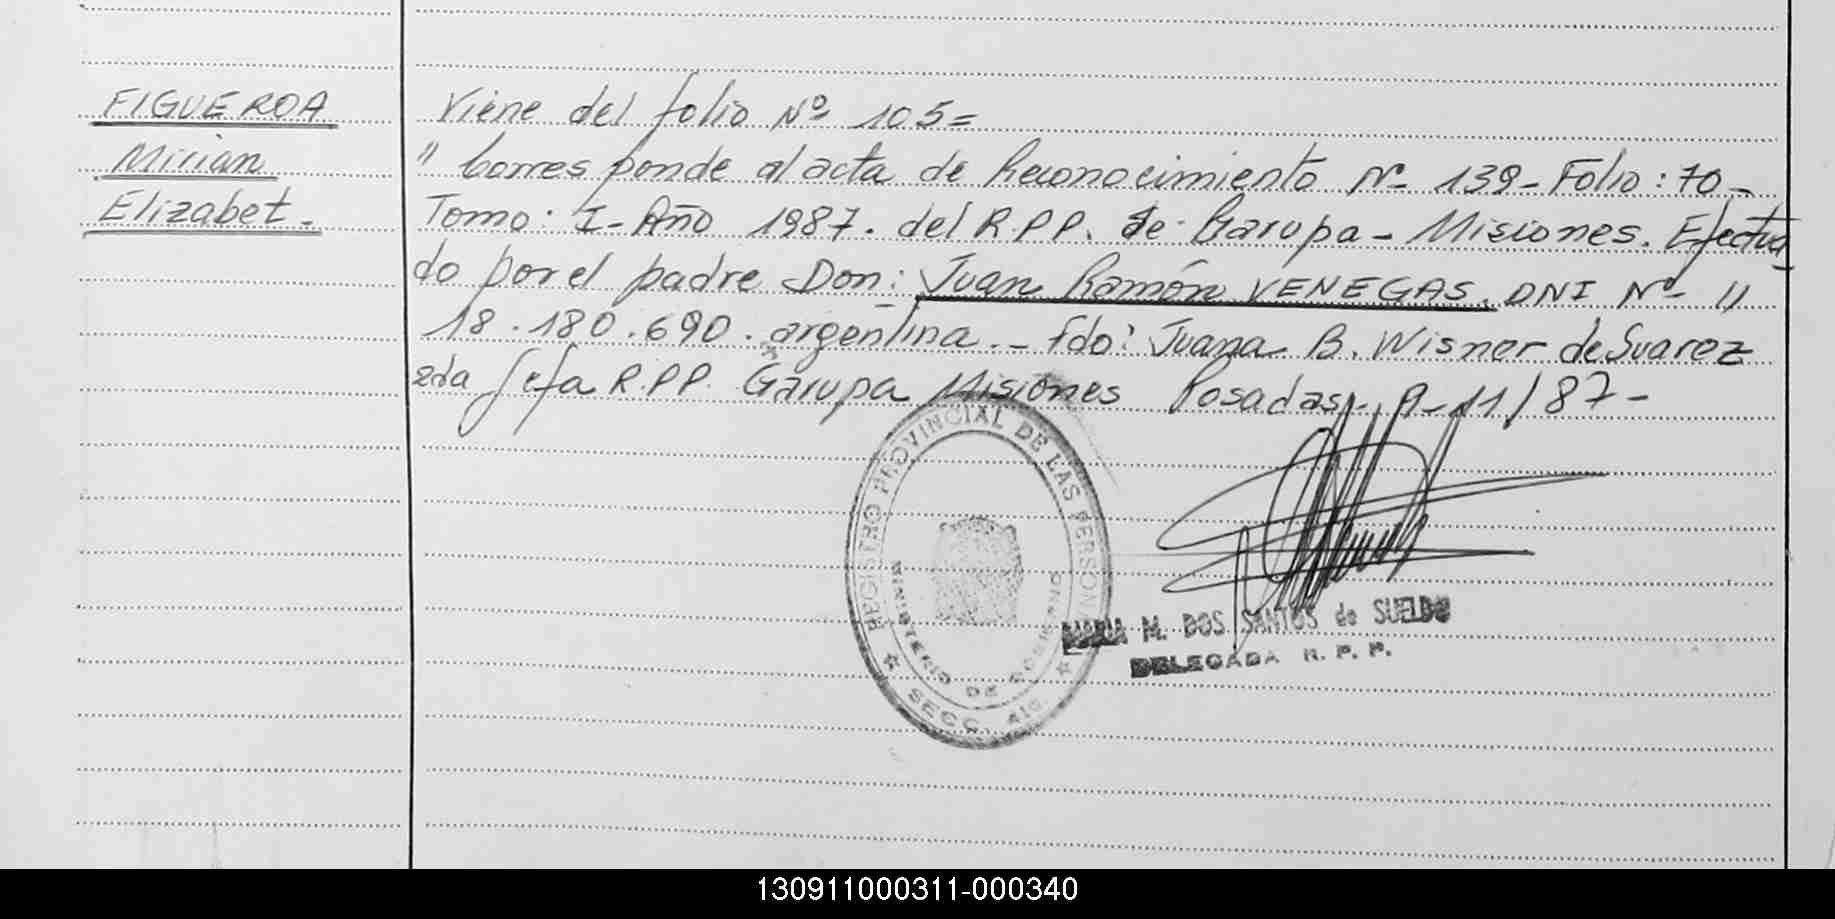 FIGUEROA
Mirian
Elizabet.
Viene del folio Nº 105=
" Corresponde al acta de Reconocimiento Nº 139- Folio: 70-
Tomo: I- Año 1987. del R.P.P. de Garupa- Misiones. Efectua
do por el padre Don: Juan Ramón VENEGAS. DNI Nº "
18.180.690. argentina.- Fdo: Juana B. Wisner de Suarez
2da Jefa R.P.P. Garupa Misiones Posadas,
11/87-
REGISTRO PROVINCIAL DE LAS PERSONAS
MINISTERIO DE GOBIERNO
SECC. 41a.
MARIA M. DOS SANTOS de SUELDO
DELEGADA R. P. P.
130911000311-000340